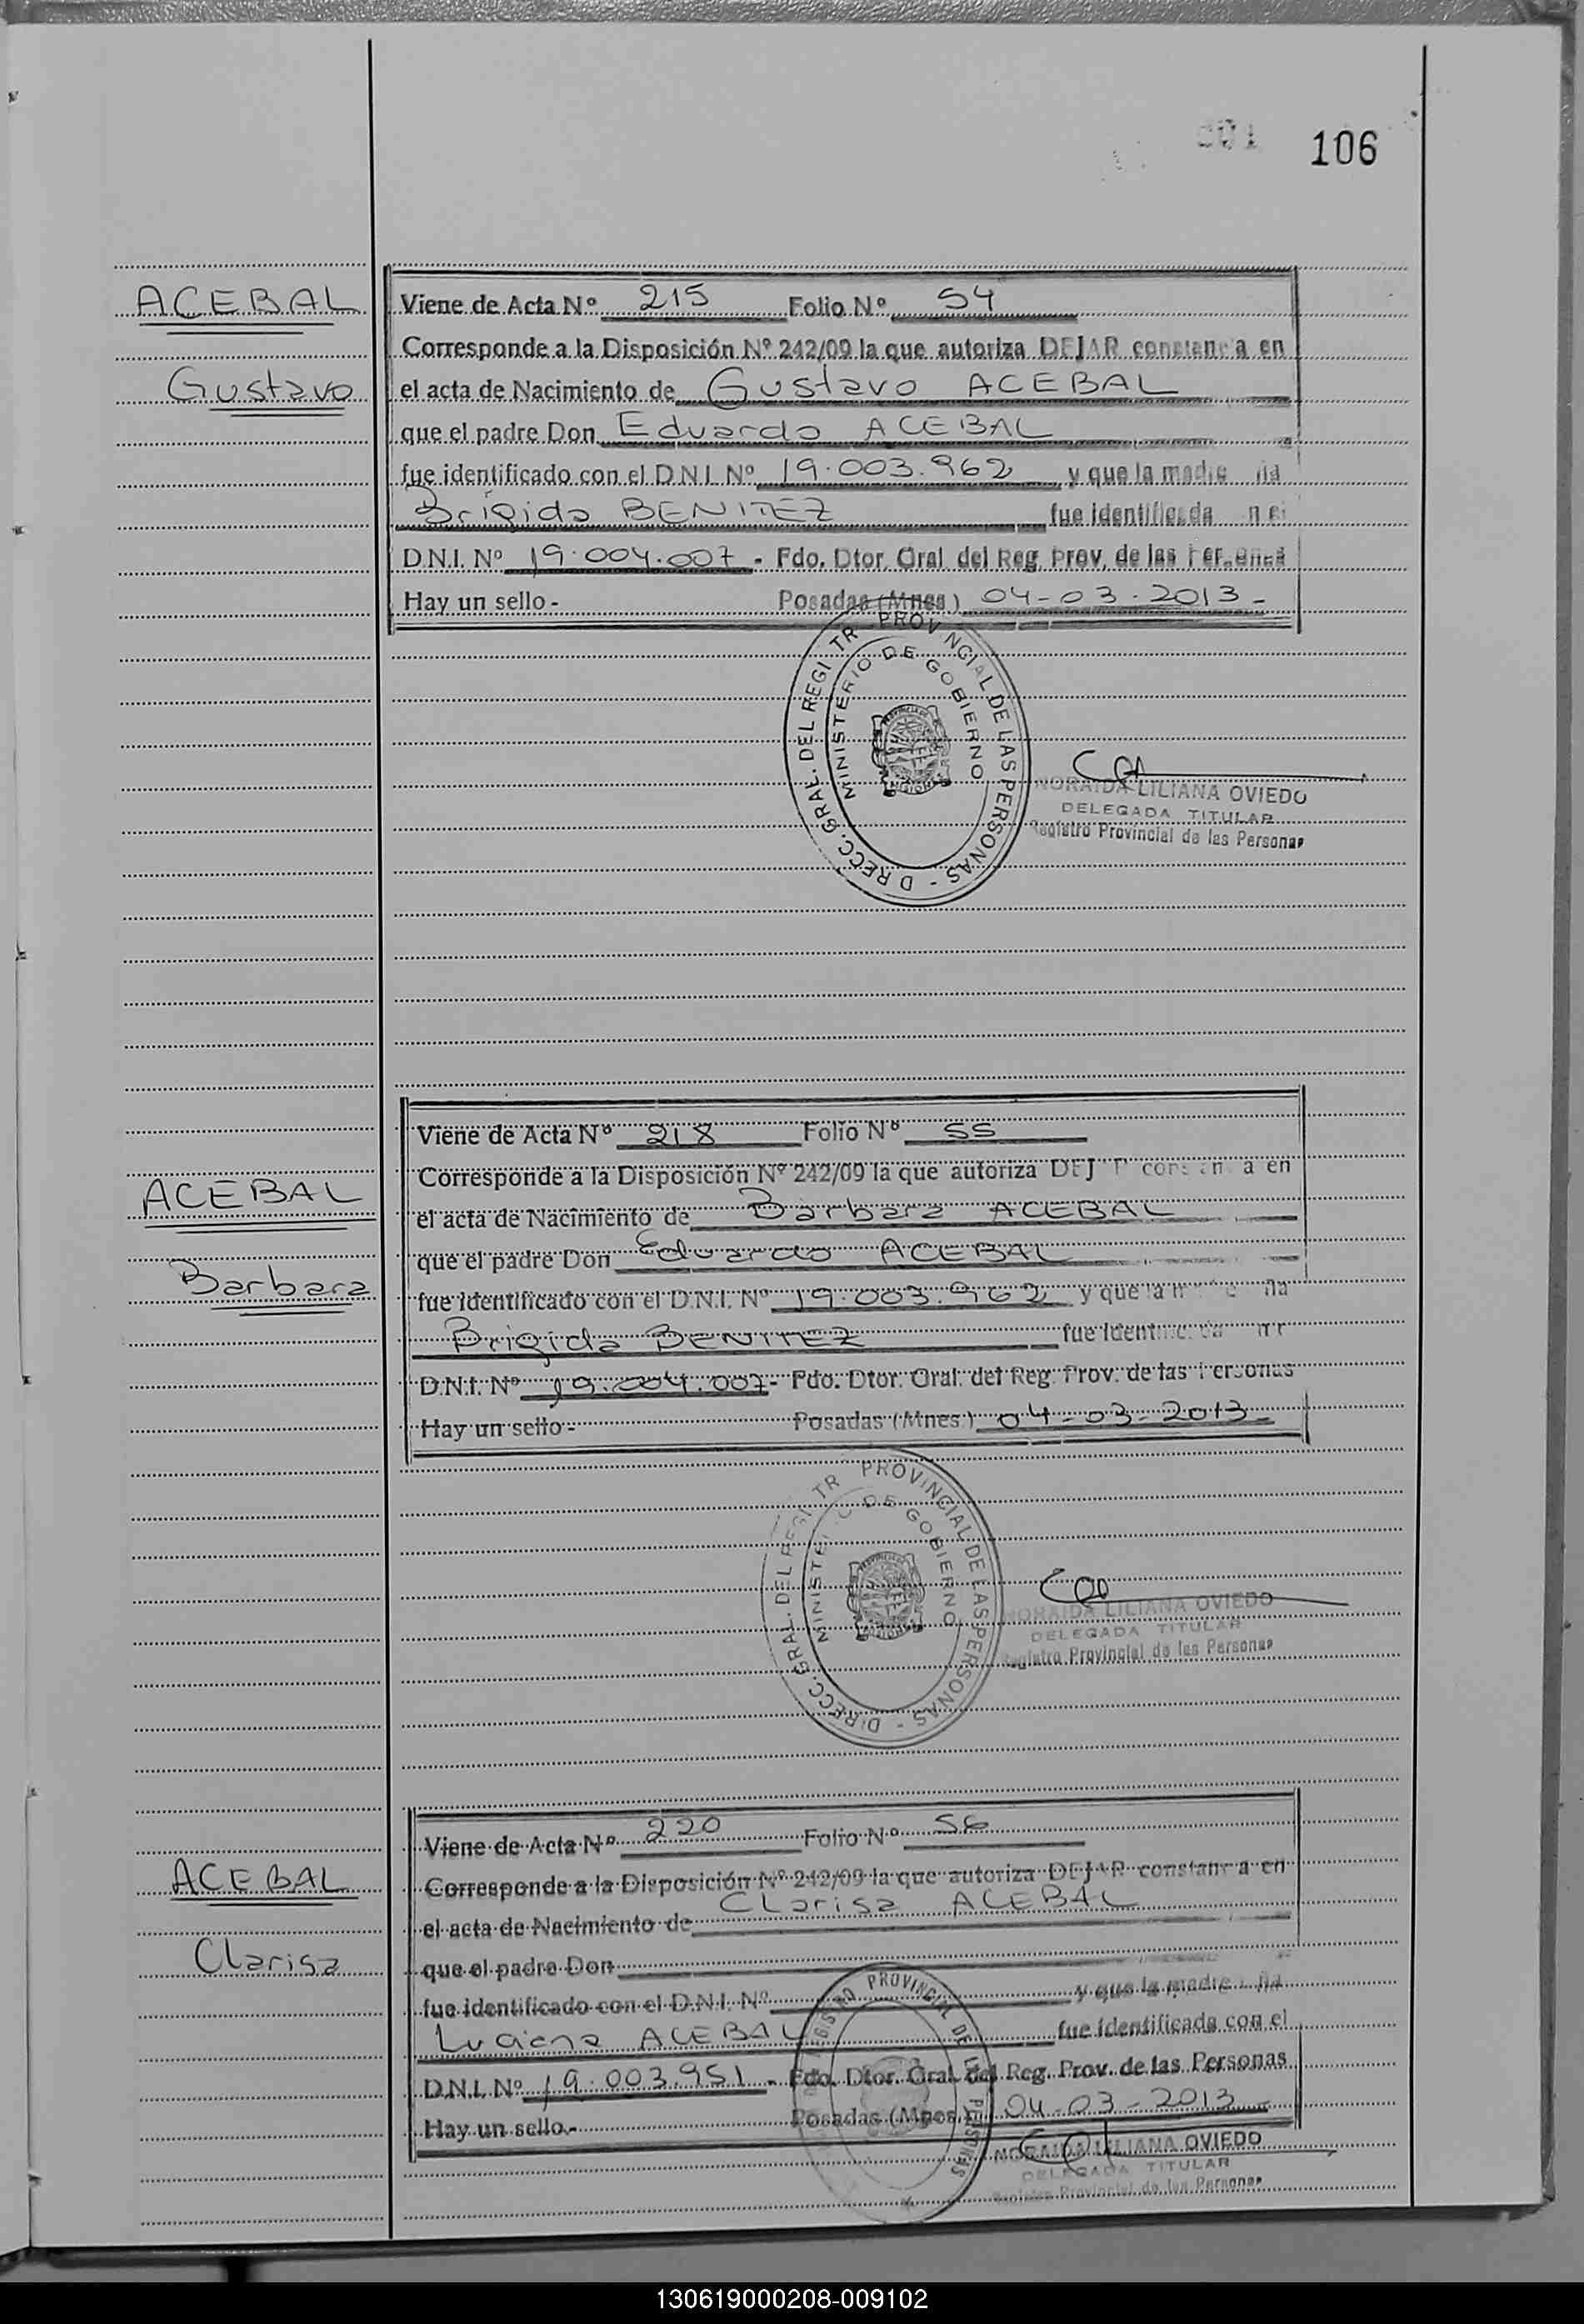 106
ACEBAL
Gustavo
Viene de Acta Nº 215 Folio Nº 54
Corresponde a la Disposición Nº 242/09 la que autoriza DEJAR constancia en
el acta de Nacimiento de Gustavo ACEBAL
que el padre Don Eduardo ACEBAL
fue identificado con el D.N.I. Nº 19.003.962 y que la madre ña
Brígida BENITEZ fue identificada n el
D.N.I. Nº 19.004.007 - Fdo. Dtor. Gral. del Reg. Prov. de las Personas
Hay un sello.- Posadas (Mnes.) 04-03-2013-
DIRECC. GRAL. DEL REGISTR PROVINCIAL DE LAS PERSONAS -
MINISTERIO DE GOBIERNO
PROVINCIA DE
MISIONES
NORAIDA LILIANA OVIEDO
DELEGADA TITULAR
Registro Provincial de las Personas
ACEBAL
Barbara
Viene de Acta Nº 218 Folio Nº 55
Corresponde a la Disposición Nº 242/09 la que autoriza DEJAR constancia en
el acta de Nacimiento de Barbara ACEBAL
que el padre Don Eduardo ACEBAL
fue identificado con el D.N.I. Nº 19.003.962 y que la madre ña
Brigida BENITEZ fue identificada
D.N.I. Nº 19.004.007- Fdo. Dtor. Gral. del Reg. Prov. de las Personas
Hay un sello.- Posadas (Mnes.) 04-03-2013-
DIRECC. GRAL. DEL REGISTR PROVINCIAL DE LAS PERSONAS -
MINISTERIO DE GOBIERNO
MISIONES
NORAIDA LILIANA OVIEDO
DELEGADA TITULAR
Registro Provincial de las Personas
ACEBAL
Clarisa
Viene de Acta Nº 220 Folio Nº 56
Corresponde a la Disposición Nº 242/09 la que autoriza DEJAR constancia en
el acta de Nacimiento de Clarisa ACEBAL
que el padre Don
fue identificado con el D.N.I. Nº y que la madre ña
Luciana ACEBAL fue identificada con el
D.N.I. Nº 19.003.951 - Fdo. Dtor. Gral. del Reg. Prov. de las Personas
Hay un sello.- Posadas (Mnes.) 04-03-2013
REGISTRO PROVINCIAL DE LAS PERSONAS
NORAIDA LILIANA OVIEDO
DELEGADA TITULAR
Registro Provincial de las Personas
130619000208-009102